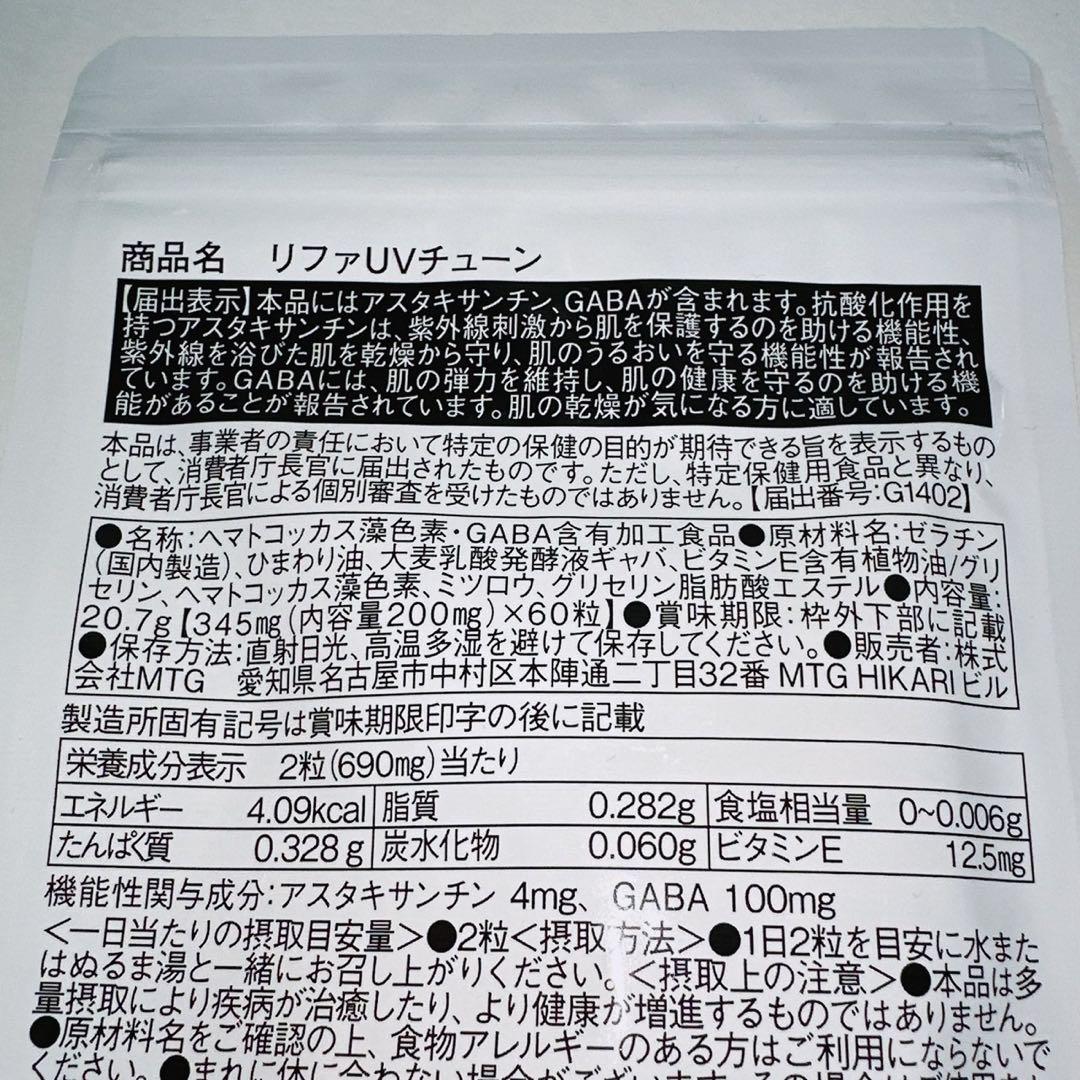 商品名　リファUVチューン
【届出表示】本品にはアスタキサンチン、GABAが含まれます。抗酸化作用を
持つアスタキサンチンは、紫外線刺激から肌を保護するのを助ける機能性、
紫外線を浴びた肌を乾燥から守り、肌のうるおいを守る機能性が報告され
ています。GABAには、肌の弾力を維持し、肌の健康を守るのを助ける機
能があることが報告されています。肌の乾燥が気になる方に適しています。
本品は、事業者の責任において特定の保健の目的が期待できる旨を表示するもの
として、消費者庁長官に届出されたものです。ただし、特定保健用食品と異なり、
消費者庁長官による個別審査を受けたものではありません。【届出番号:G1402】
●名称:ヘマトコッカス藻色素・GABA含有加工食品●原材料名:ゼラチン
(国内製造)、ひまわり油、大麦乳酸発酵液ギャバ、ビタミンE含有植物油/グリ
セリン、ヘマトコッカス藻色素、ミツロウ、グリセリン脂肪酸エステル●内容量:
20.7g【345mg(内容量200mg)×60粒】●賞味期限:枠外下部に記載
●保存方法:直射日光、高温多湿を避けて保存してください。●販売者:株式
会社MTG　愛知県名古屋市中村区本陣通二丁目32番 MTG HIKARIビル
製造所固有記号は賞味期限印字の後に記載
栄養成分表示　2粒(690mg)当たり
エネルギー 4.09kcal 脂質 0.282g 食塩相当量 0~0.006g
たんぱく質 0.328g 炭水化物 0.060g ビタミンE 12.5mg
機能性関与成分:アスタキサンチン 4mg、GABA 100mg
<一日当たりの摂取目安量>●2粒<摂取方法>●1日2粒を目安に水また
はぬるま湯と一緒にお召し上がりください。<摂取上の注意>●本品は多
量摂取により疾病が治癒したり、より健康が増進するものではありません。
●原材料名をご確認の上、食物アレルギーのある方はご利用にならないで
ください。●まれに体に合わない場合がございます。その場合は